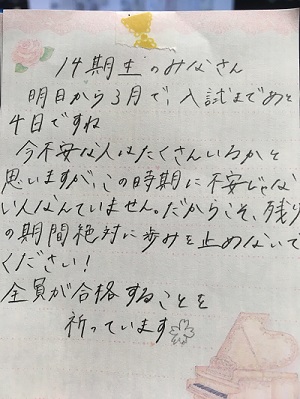 14期生のみなさん
明日から3月で、入試まであと
4日ですね
今不安な人はたくさんいるかと
思いますが、この時期に不安じゃな
い人なんていません。だからこそ、残り
の期間絶対に歩みを止めないで
ください!
全員が合格することを
祈っています